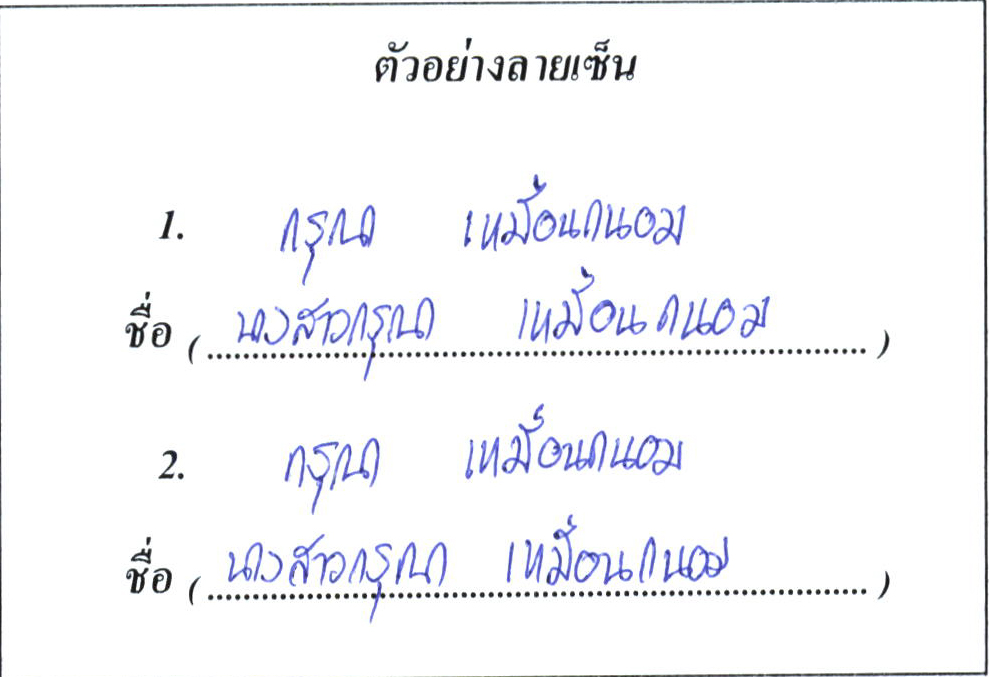 ตัวอย่างลายเซ็น
1. กรุณา เหมือนถนอม
ชื่อ (นางสาวกรุณา เหมือนถนอม)
2. กรุณา เหมือนถนอม
ชื่อ (นางสาวกรุณา เหมือนถนอม)